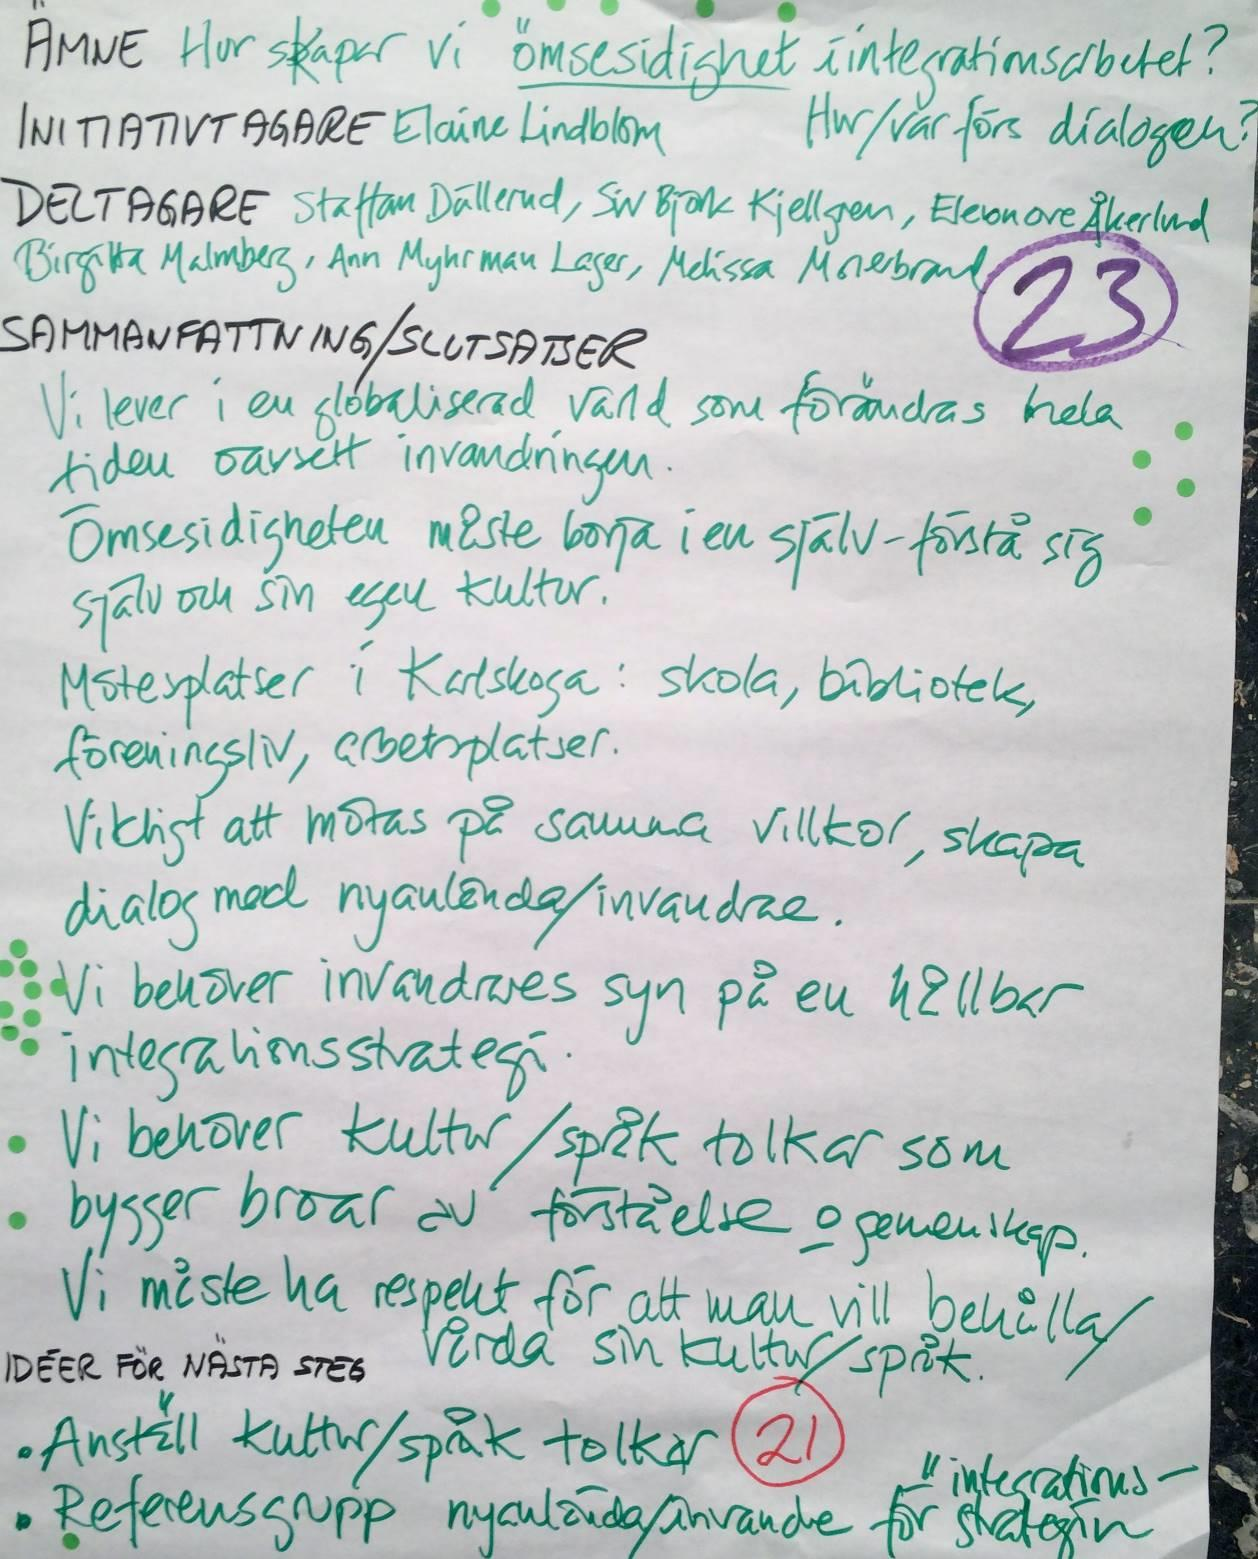 ÄMNE Hur skapar vi ömsesidighet i integrationsarbetet?
INITIATIVTAGARE Elaine Lindblom Hur/var förs dialogen?
DELTAGARE Staffan Dällerud, Siv Björk Kjellgren, Eleonore Åkerlund
Birgitta Malmberg, Ann Myhrman Lager, Melissa
23
SAMMANFATTNING/SLUTSATSER
Vi lever i en globaliserad värld som förändras hela
tiden oavsett invandringen.
Ömsesidigheten måste börja i en själv-förstå sig
själv och sin egen kultur.
Mötesplatser i Karlskoga: skola, bibliotek,
föreningsliv, arbetsplatser.
Viktigt att mötas på samma villkor, skapa
dialog med nyanlända/invandrae.
Vi behöver invandrares syn på en hållbar
integrationsstrategi.
Vi behöver kultur/språk tolkar som
bygger broar av förståelse o gemenskap.
Vi måste ha respekt för att man vill behålla/
vårda sin kultur/språk.
IDÉER FÖR NÄSTA STEG
• Anställ kultur/språk tolkar 21
• Referensgrupp nyanlända/invandre för integrations-
strategin